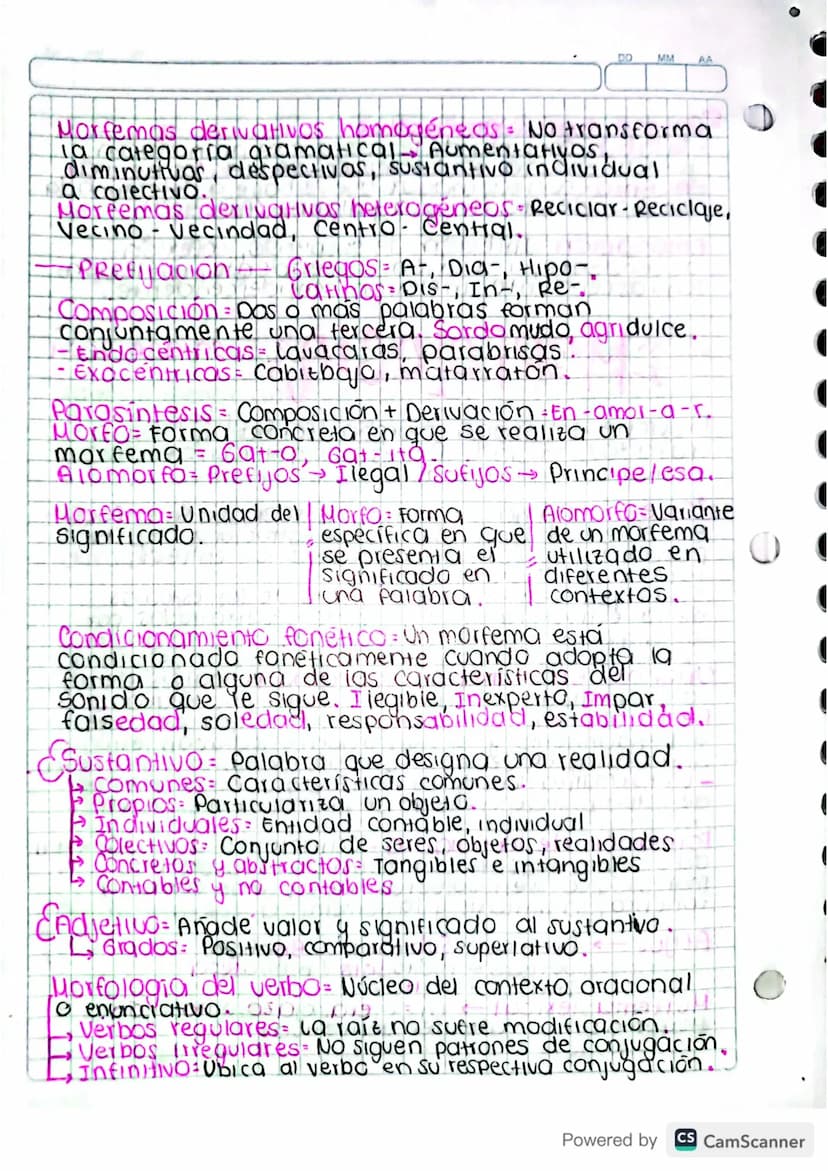 DD MM AA
Morfemas derivativos homogéneos = No transforma
la categoría gramatical → Aumentativos,
diminutivos, despectivos, sustantivo individual
a colectivo.
Morfemas derivativos heterogéneos = Reciclar - Reciclaje,
Vecino - Vecindad, Centro - Central.
— Prefijación — Griegos = A-, Dia-, Hipo-.
Latinos = Dis-, In-, Re-.
Composición = Dos o más palabras forman
conjuntamente una tercera. Sordomudo, agridulce.
- Endocéntricas = Lavacaras, parabrisas.
- Exocéntricas = Cabizbajo, matarratón.
Parasíntesis = Composición + Derivación = En -amor-a-r.
Morfo = Forma concreta en que se realiza un
morfema = Gat-o, Gat-ita.
Alomorfo = Prefijos → Ilegal / Sufijos → Principe/esa.
Morfema = Unidad del
significado.
Morfo = Forma
específica en que
se presenta el
significado en
una palabra.
Alomorfo = Variante
de un morfema
utilizado en
diferentes
contextos.
Condicionamiento fonético = Un morfema está
condicionado fonéticamente cuando adopta la
forma o alguna de las características del
sonido que le sigue. Ilegible, Inexperto, Impar,
falsedad, soledad, responsabilidad, estabilidad.
Sustantivo = Palabra que designa una realidad.
↳ Comunes = Características comunes.
↳ Propios = Particulariza un objeto.
↳ Individuales = Entidad contable, individual
↳ Colectivos = Conjunto de seres, objetos, realidades
↳ Concretos y abstractos = Tangibles e intangibles
↳ Contables y no contables
Adjetivo = Añade valor y significado al sustantivo.
↳ Grados = Positivo, comparativo, superlativo.
Morfología del verbo = Núcleo del contexto oracional
o enunciativo.
↳ Verbos regulares = La raíz no sufre modificación.
↳ Verbos irregulares = No siguen patrones de conjugación.
↳ Infinitivo = Ubica al verbo en su respectiva conjugación.
Powered by CS CamScanner